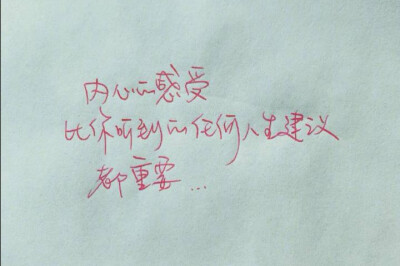 内心的感受
比你听到的任何人生建议
都重要...